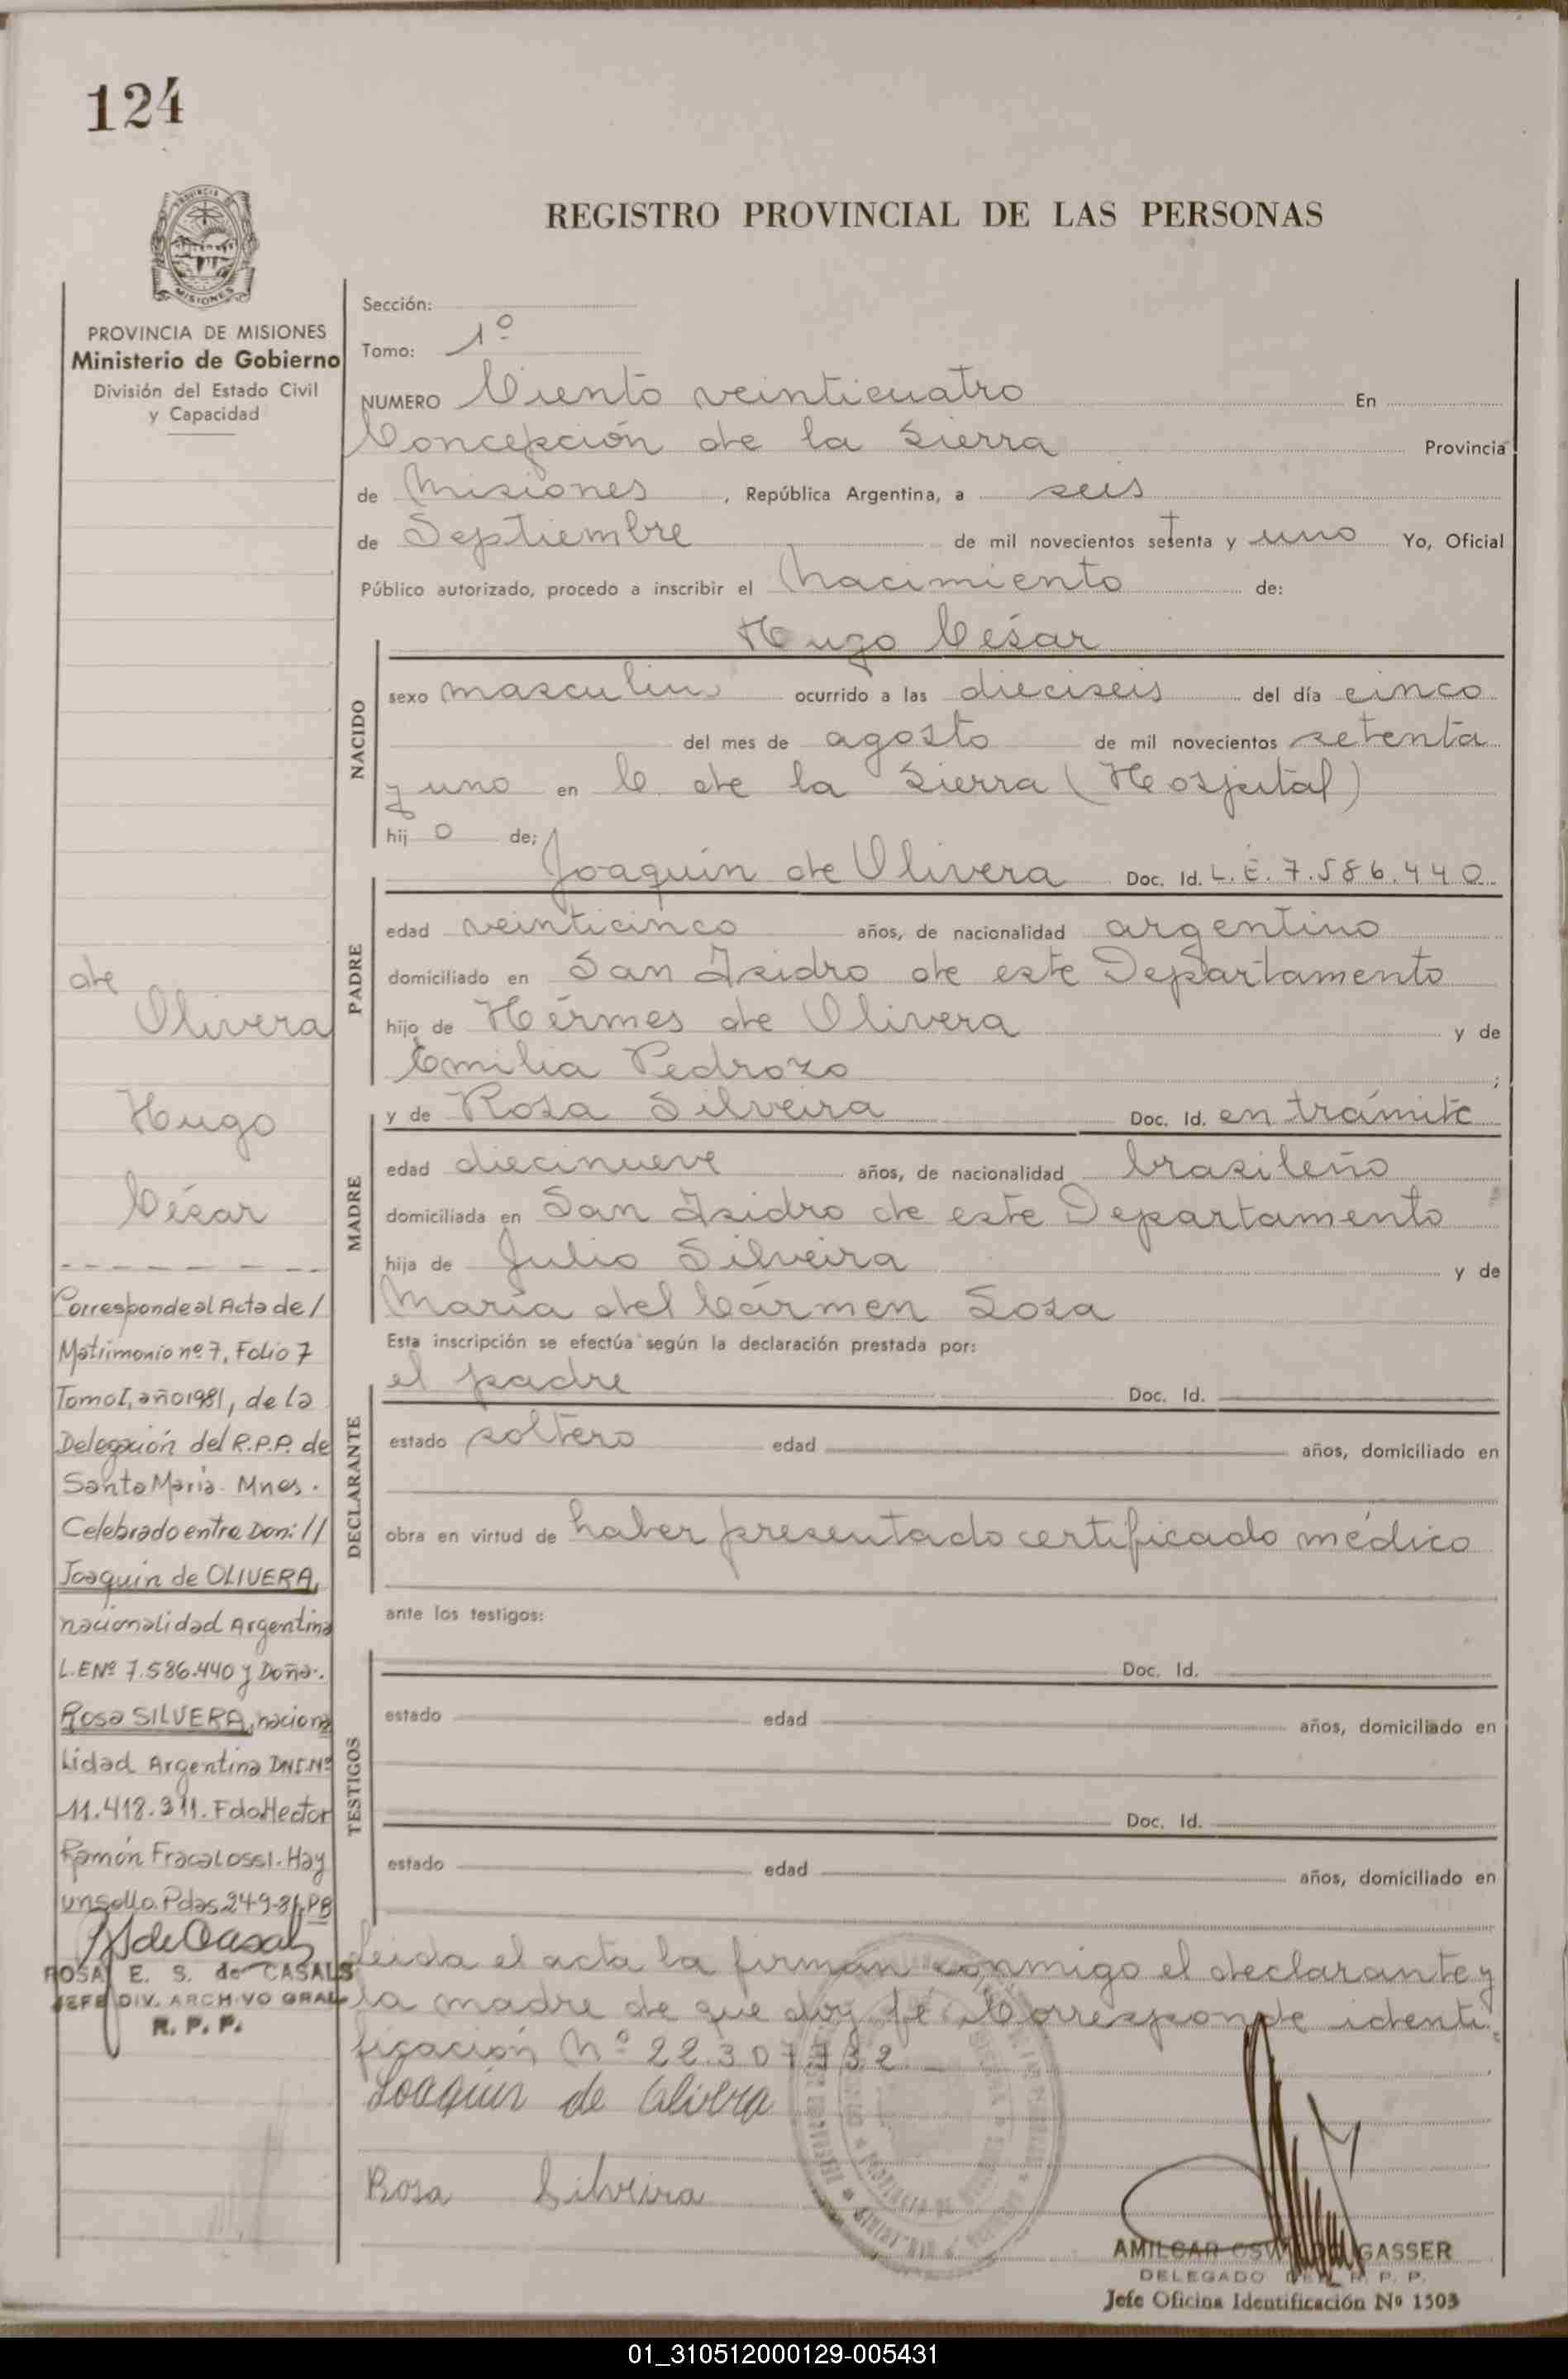 124
PROVINCIA DE MISIONES
Ministerio de Gobierno
División del Estado Civil
y Capacidad
REGISTRO PROVINCIAL DE LAS PERSONAS
Sección:
Tomo: 1º
NUMERO Ciento veinticuatro En
Concepción de la Sierra Provincia
de Misiones, República Argentina, a seis
de Septiembre de mil novecientos setenta y uno Yo, Oficial
Público autorizado, procedo a inscribir el nacimiento de:
Hugo César
NACIDO
sexo masculino ocurrido a las dieciseis del día cinco
del mes de agosto de mil novecientos setenta
y uno en C. de la Sierra (Hospital)
hijo de;
Joaquín de Olivera Doc. Id. L.E. 7.586.440
PADRE
edad veinticinco años, de nacionalidad argentino
domiciliado en San Isidro de este Departamento
hijo de Hérmes de Olivera y de
Emilia Pedrozo ;
y de Rosa Silveira Doc. Id. en trámite
MADRE
edad diecinueve años, de nacionalidad brasileño
domiciliada en San Isidro de este Departamento
hija de Julio Silveira y de
María del Cármen Sosa
Esta inscripción se efectúa según la declaración prestada por:
el padre Doc. Id.
DECLARANTE
estado soltero edad años, domiciliado en
obra en virtud de haber presentado certificado médico
ante los testigos:
TESTIGOS
Doc. Id.
estado edad años, domiciliado en
Doc. Id.
estado edad años, domiciliado en
leida el acta la firman conmigo el declarante y
la madre de que doy fé. Corresponde identi
ficación Nº 22.307.732
Joaquin de Olivera
Rosa Silveira
AMILCAR GASSER
DELEGADO DEL R. P. P.
Jefe Oficina Identificación Nº 1503
de
Olivera
Hugo
César
Corresponde al Acta de /
Matrimonio nº 7, Folio 7
Tomo I, año 1981, de la
Delegación del R.P.P. de
Santa María - Mnes.
Celebrado entre Don: //
Joaquin de OLIVERA,
nacionalidad Argentina
L.E Nº 7.586.440 y Doña:.
Rosa SILVERA, naciona
lidad Argentina DNI. Nº
11.418.311. Fdo Hector
Ramón Fracalossi. Hay
un sello. Pdas 249-81. PB
ROSA E. S. de CASALS
JEFE DIV. ARCHIVO GRAL
R. P. P.
01_310512000129-005431